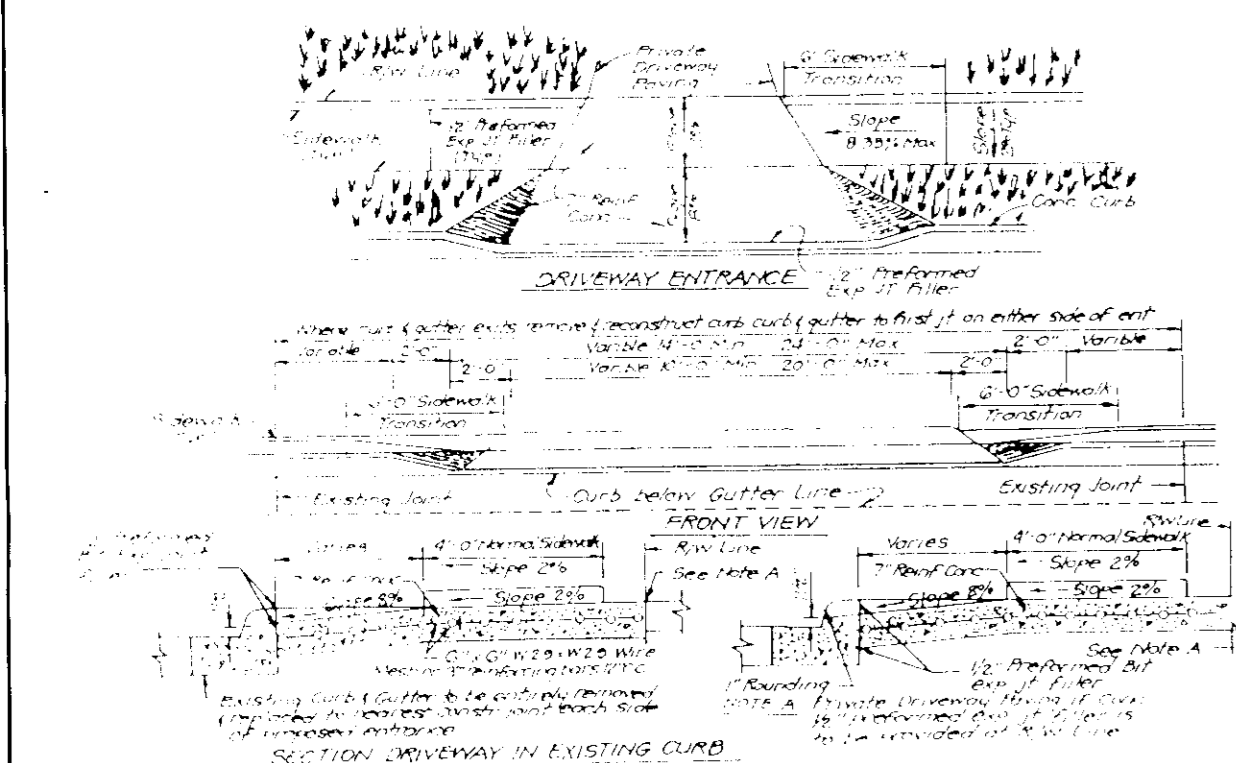 R/W Line
Private
Driveway
Paving
6' Sidewalk
Transition
Sidewalk
(Typ)
1/2" Preformed
Exp JT Filler
(Typ)
Slope
2%
Slope
8%
Slope
8 33% Max
Slope
2% Typ
7" Reinf
Conc
Conc Curb
DRIVEWAY ENTRANCE
1/2" Preformed
Exp JT Filler
Where curb & gutter exits remove & reconstruct curb curb & gutter to first jt on either side of ent
Varible 14'-0 Min 24'-0" Max
2'-0"
2'-0"
Varible
2'-0"
Varible 10'-0 Min 20'-0" Max
2'-0"
6'-0" Sidewalk
Transition
6'-0" Sidewalk
Transition
Sidewalk
Existing Joint
Curb below Gutter Line
Existing Joint
FRONT VIEW
Varies
4'-0" Normal Sidewalk
Slope 2%
R/W Line
See Note A
7" Reinf Conc
Slope 8%
Slope 2%
6" x 6" W29 x W29 Wire
Existing Curb & Gutter to be entirely removed
& replaced to nearest constr joint each side
of proposed entrance
SECTION DRIVEWAY IN EXISTING CURB
Varies
4'-0" Normal Sidewalk
R/W Line
7" Reinf Conc
Slope 2%
Slope 8%
Slope 2%
See Note A
1" Rounding
1/2" Preformed Bit
exp jt filler
NOTE A Private Driveway Paving if Conc
1/2" preformed exp jt filler is
to be provided at R/W Line